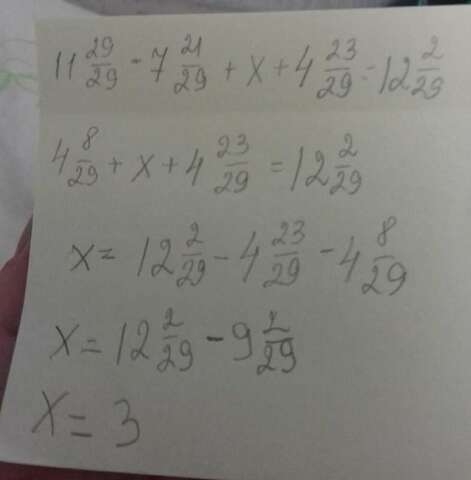 11 29/29 - 7 21/29 + x + 4 23/29 = 12 2/29
4 8/29 + x + 4 23/29 = 12 2/29
x = 12 2/29 - 4 23/29 - 4 8/29
x = 12 2/29 - 9 2/29
x = 3